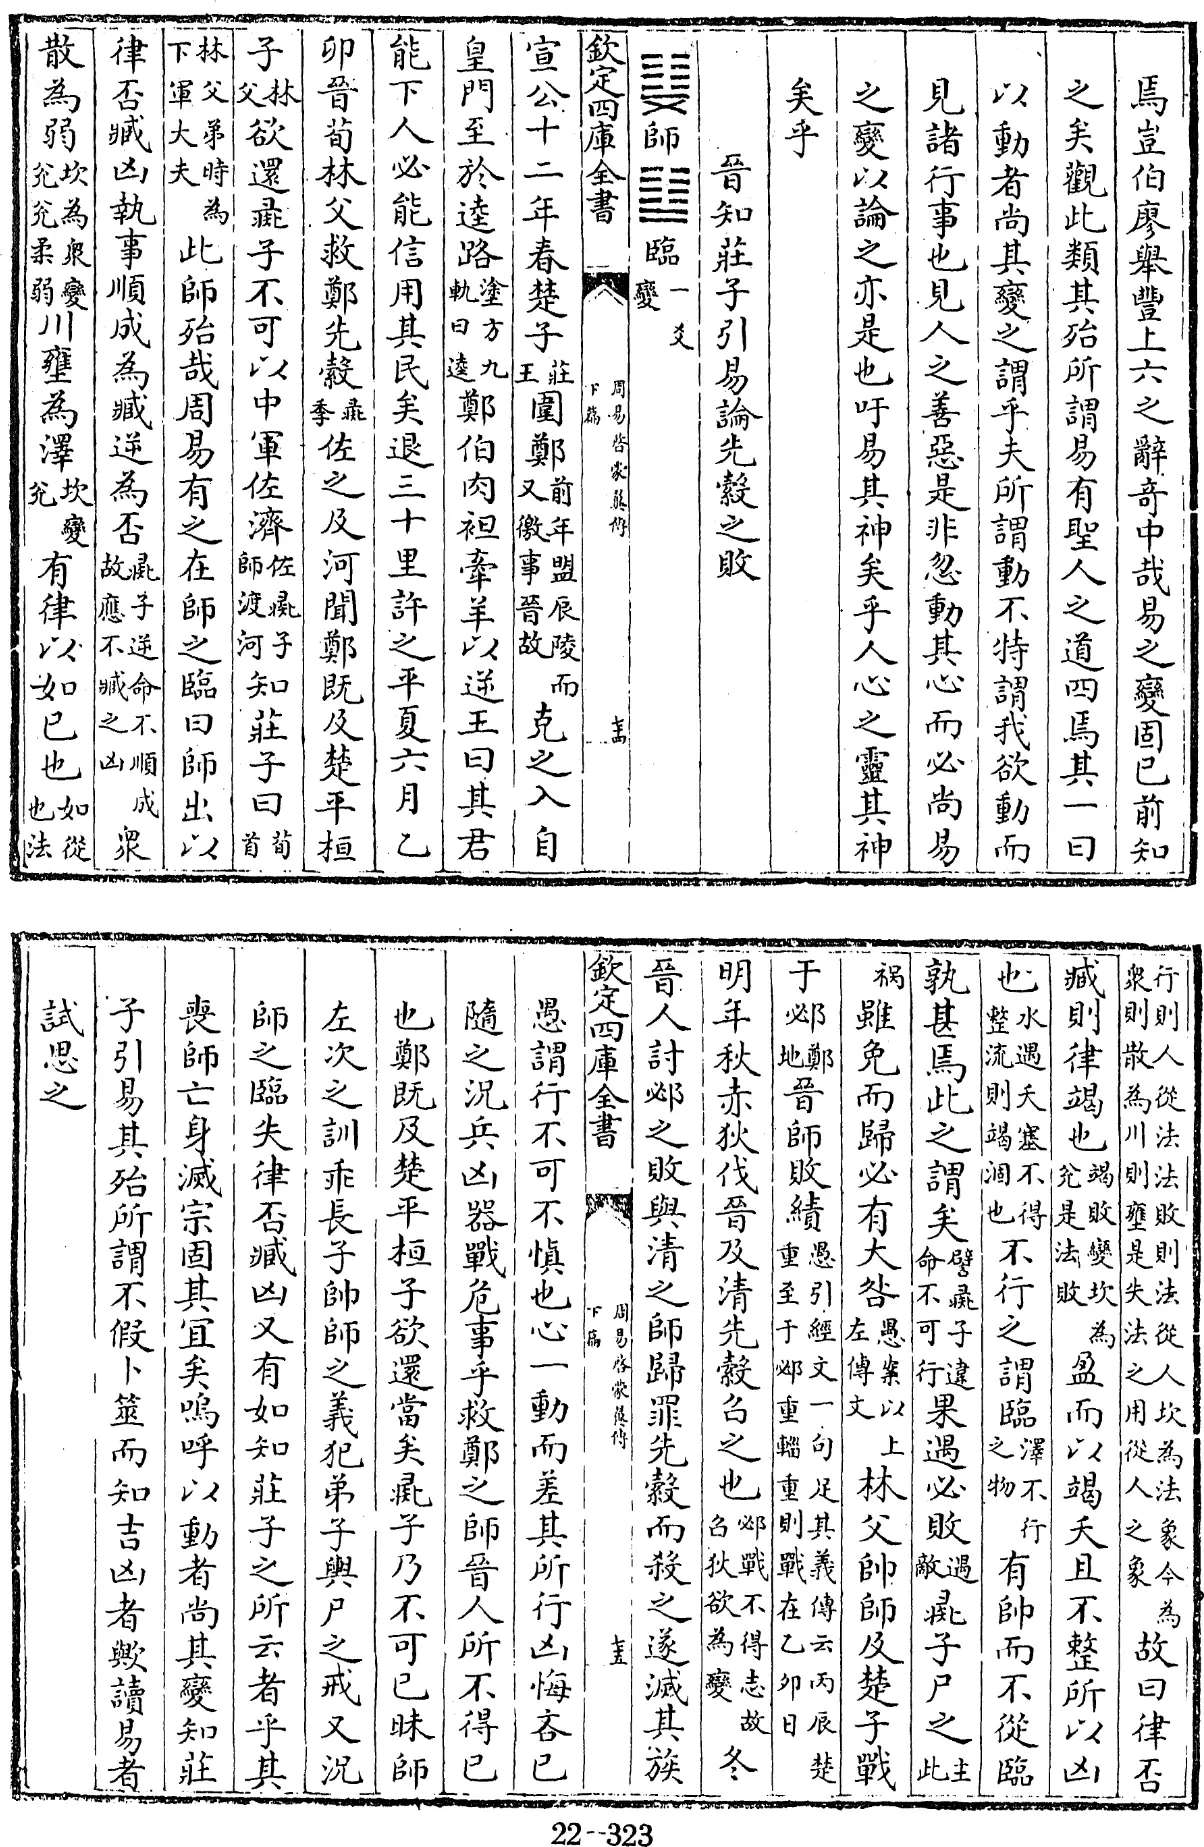 焉豈伯廖舉豐上六之辭竒中哉易之變固已前知
之矣觀此類其殆所謂易有聖人之道四焉其一曰
以動者尚其變之謂乎夫所謂動不特謂我欲動而
見諸行事也見人之善惡是非忽動其心而必尚易
之變以論之亦是也吁易其神矣乎人心之靈其神
矣乎
晉知莊子引易論先縠之敗
師 臨 一爻變
欽定四庫全書
周易啓蒙翼傳 下篇
宣公十二年春楚子莊王圍鄭前年盟辰陵而又徼事晉故克之入自
皇門至於逵路塗方九軌曰逵鄭伯肉袒牽羊以逆王曰其君
能下人必能信用其民矣退三十里許之平夏六月乙
卯晉荀林父救鄭先縠彘季佐之及河聞鄭既及楚平桓
子林父欲還彘子不可以中軍佐濟佐彘子師渡河知莊子曰荀首
林父弟時為下軍大夫此師殆哉周易有之在師之臨曰師出以
律否臧凶執事順成為臧逆為否彘子逆命不順成故應不臧之凶衆
散為弱坎為衆變兊兊柔弱川壅為澤坎變兊有律以如已也如從也法
行則人從法法敗則法從人坎為法象今為衆則散為川則壅是失法之用從人之象故曰律否
臧則律竭也竭敗變坎為兊是法敗盈而以竭夭且不整所以凶
也水遇夭塞不得整流則竭涸也不行之謂臨澤不行之物有帥而不從臨
孰甚焉此之謂矣譬彘子違命不可行果遇必敗遇敵彘子尸之主此
禍雖免而歸必有大咎愚案以上左傳文林父帥師及楚子戰
于邲鄭地晉師敗績愚引經文一句足其義傳云丙辰楚重至于邲重輜重則戰在乙卯日
明年秋赤狄伐晉及清先縠召之也邲戰不得志故召狄欲為變冬
晉人討邲之敗與清之師歸罪先縠而殺之遂滅其族
欽定四庫全書
周易啓蒙翼傳 下篇
愚謂行不可不慎也心一動而差其所行凶悔吝已
隨之況兵凶器戰危事乎救鄭之師晉人所不得已
也鄭既及楚平桓子欲還當矣彘子乃不可已昧師
左次之訓乖長子帥師之義犯弟子輿尸之戒又況
師之臨失律否臧凶又有如知莊子之所云者乎其
喪師亡身滅宗固其宜矣嗚呼以動者尚其變知莊
子引易其殆所謂不假卜筮而知吉凶者歟讀易者
試思之
22--323